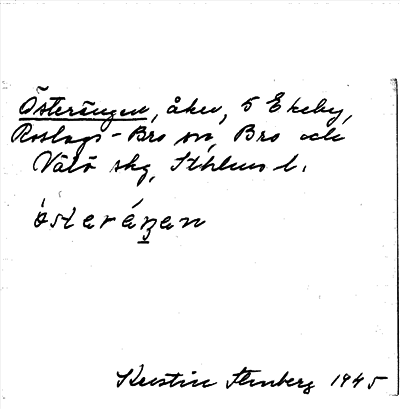 Österängen, åker, 5 Ekeby,
Roslags-Bro sn, Bro och
Vätö skg, Sthlms l.
österäŋen
Kerstin Stenberg 1945